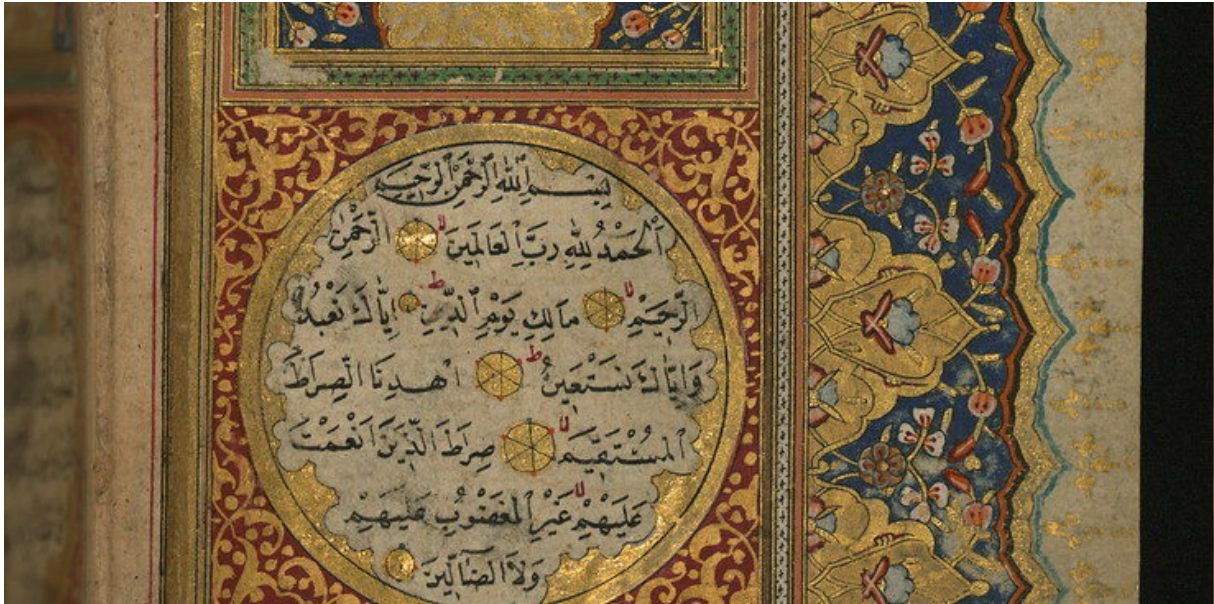 بِسْمِ ٱللَّهِ ٱلرَّحْمٰنِ ٱلرَّحِيمِ
اَلْحَمْدُ لِلّٰهِ رَبِّ ٱلْعَالَمِينَ ۙ الرَّحْمٰنِ
الرَّحِيمِ ۙ مَالِكِ يَوْمِ ٱلدِّينِ ط اِيَّاكَ نَعْبُدُ
وَاِيَّاكَ نَسْتَعِينُ ط اهْدِنَا الصِّرَاطَ
الْمُسْتَقِيمَ ۙ صِرَاطَ الَّذِينَ اَنْعَمْتَ
عَلَيْهِمْ ۙ غَيْرِ الْمَغْضُوبِ عَلَيْهِمْ
وَلَا الضَّآلِّينَ